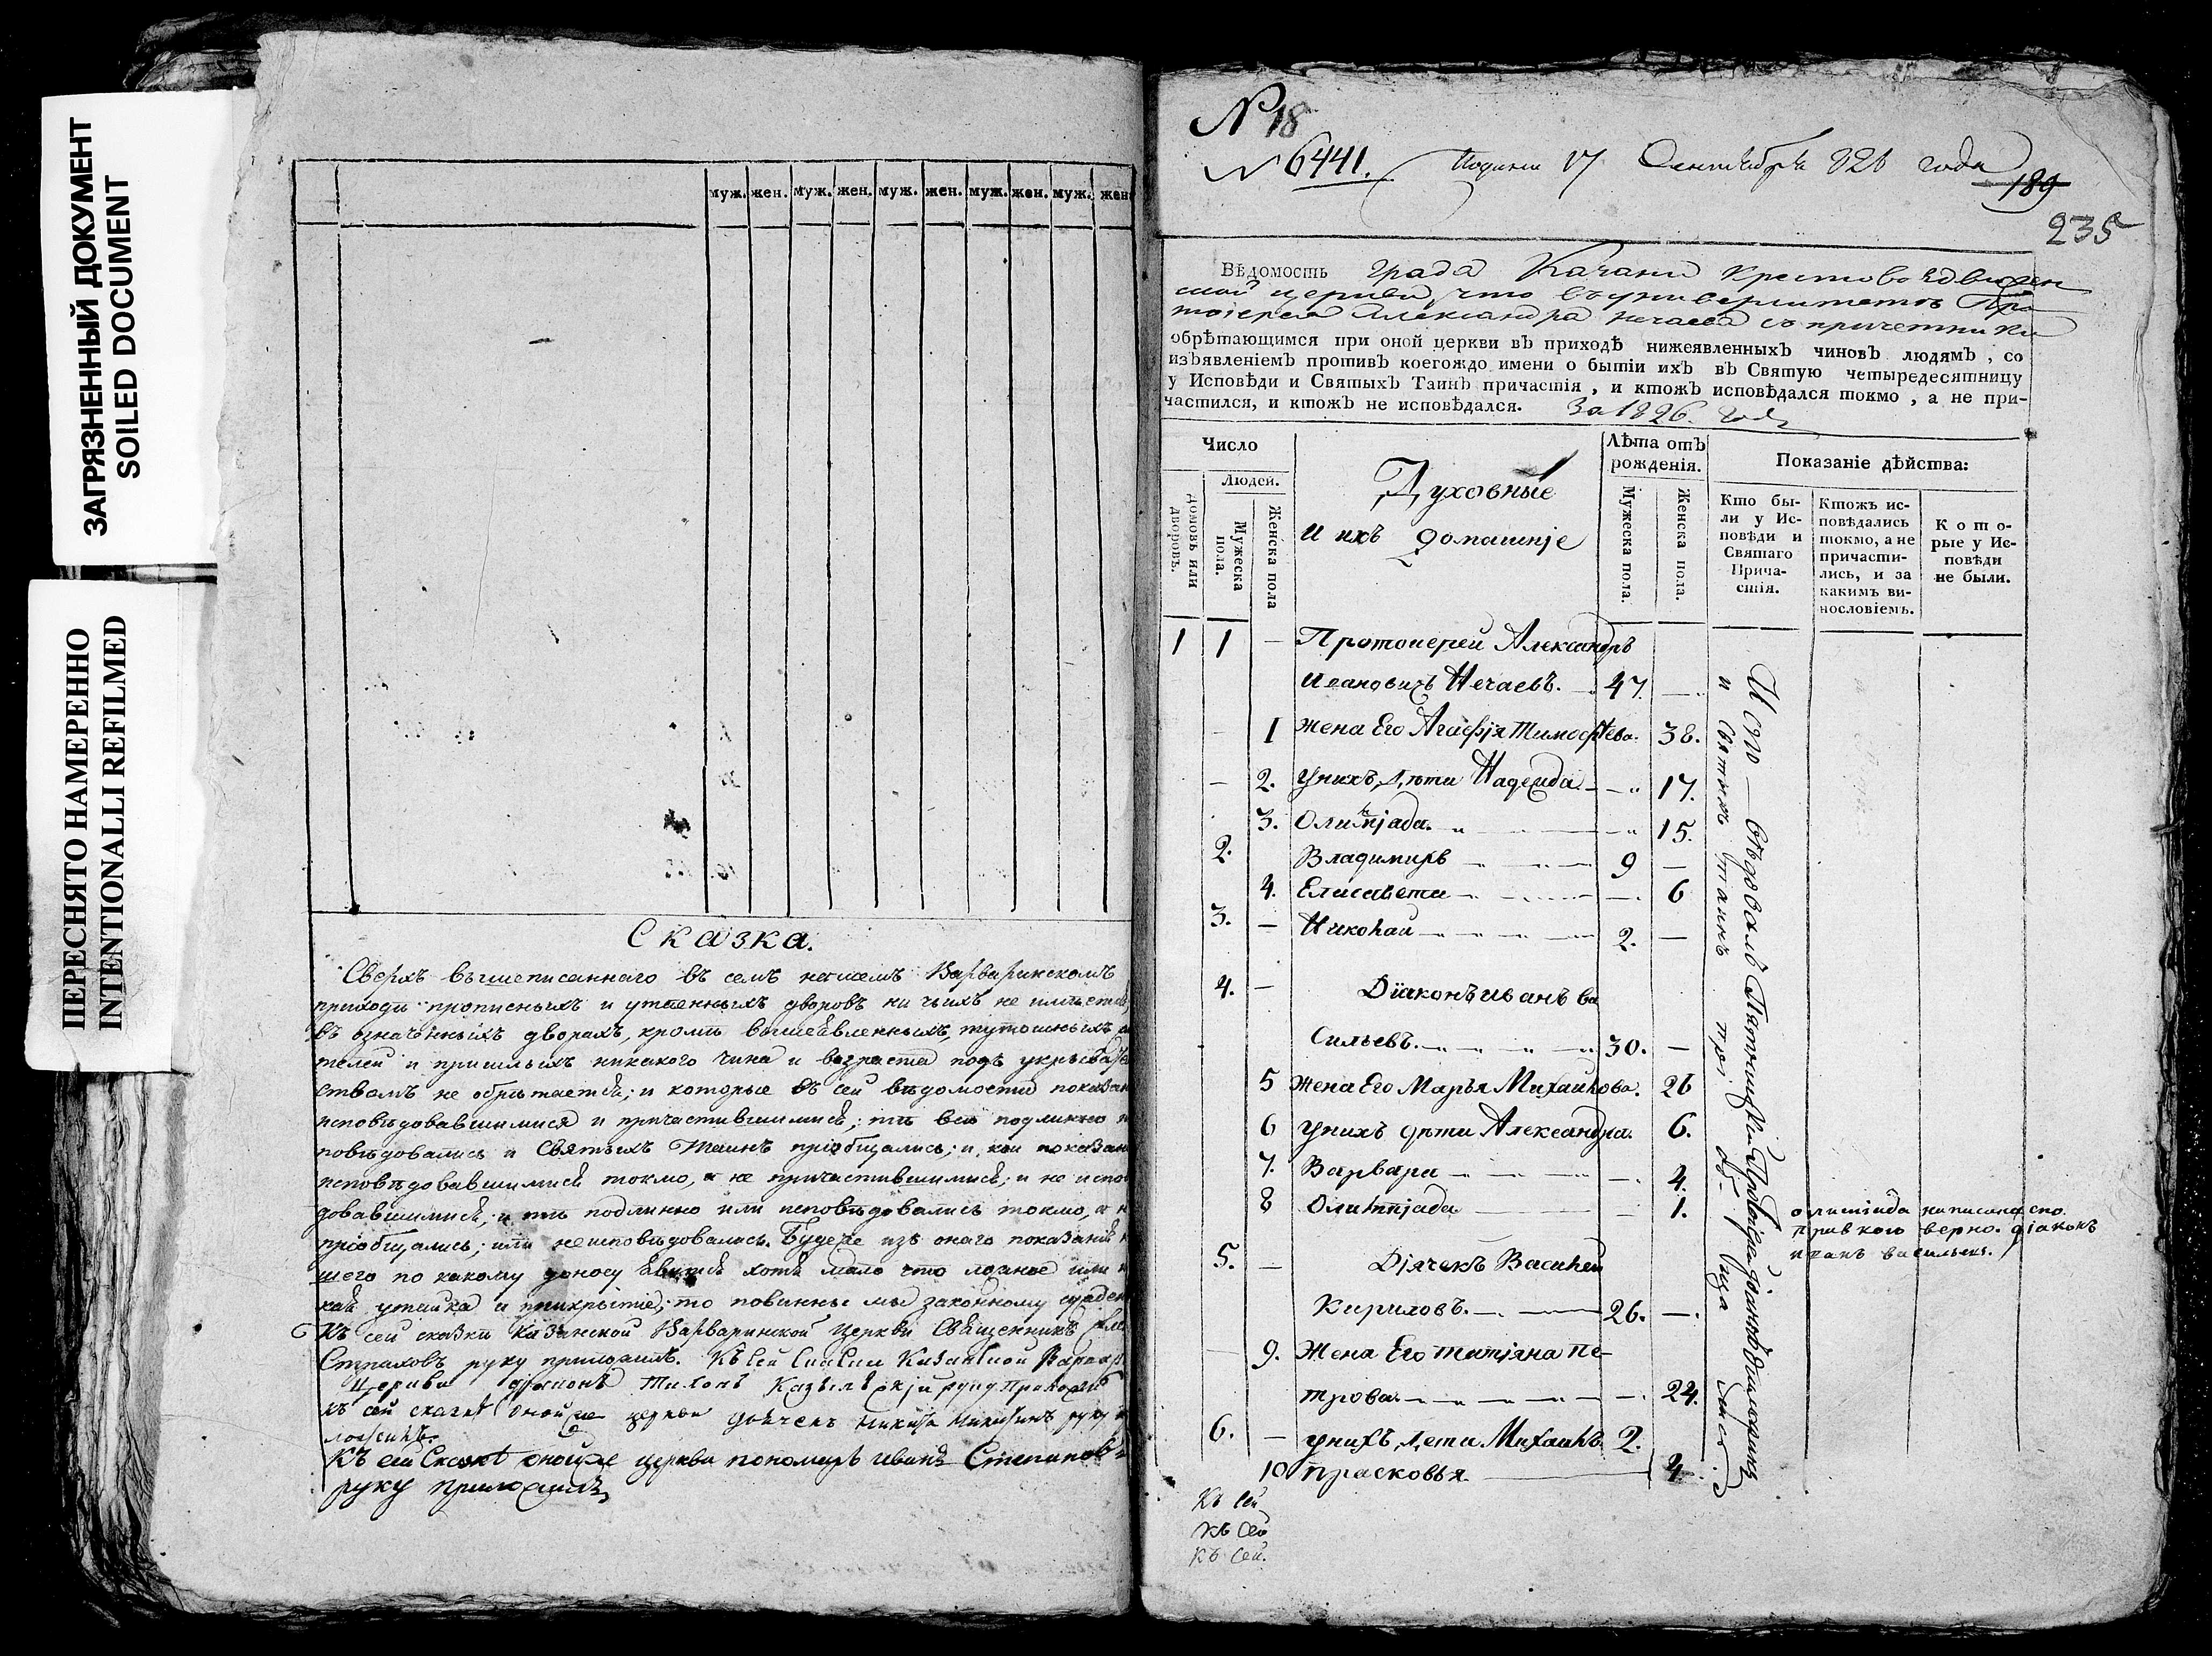 ЗАГРЯЗНЕННЫЙ ДОКУМЕНТ
SOILED DOCUMENT
ПЕРЕСНЯТО НАМЕРЕННО
INTENTIONALLI REFILMED
муж. жен. муж. жен. муж. жен. муж. жен. муж. жен
Сказка.
Сверхъ вышеписаннаго въ семъ нашемъ Варваринскомъ
приходѣ прописныхъ и утаенныхъ дворовъ ни чьихъ не имѣет
въ означенныхъ дворахъ, кромѣ вышеявленныхъ, тутошныхъ
телей и пришлыхъ никакого чина и возраста подъ укрыва
ствомъ не обрѣтается; и которые въ сей вѣдомости показан
исповѣдовавшимися и причастившимися; тѣ всѣ подлинно и
повѣдовались и Святыхъ Таинъ пріобщались; и кои показан
исповѣдовавшимися токмо, а не причастившимися; и не испо
довавшимися; и тѣ подлинно или исповѣдовались токмо, а н
пріобщались; или неисповѣдовались. Будеже изъ онаго показанія н
шего по какому доносу явится хотя мало что ложное или
кая утайка и прикрытіе; то повинны мы законному сужден
Къ сей сказкѣ Казанской Варваринской церкви Священникъ
Страховъ руку приложилъ. Къ сей сказки Казанской Варвар
Церкви діаконъ Тихонъ руку приложилъ
къ сей сказкѣ оной же церкви дьячекъ Никита Никитинъ руку
ложилъ.
Къ сей Сказкѣ оной же церкви пономарь иванъ Степановъ
руку приложилъ
№ 18
№ 6441. Подана 17 Сентября 826 года
189
235
Вѣдомость града Казани крестовоздвижен
ской церкви, что въ университетѣ Про
тоіерея Александра Нечаева съ причетники
обрѣтающимся при оной церкви въ приходѣ нижеявленныхъ чиновъ людямъ, со
изъявленіемъ противъ коегождо имени о бытіи ихъ въ Святую четыредесятницу
у Исповѣди и Святыхъ Таинъ причастія, и ктожъ исповѣдался токмо, а не при-
частился, и ктожъ не исповѣдался. За 1826. годъ
Число
Людей.
домовъ или дворовъ.
Мужеска пола.
Женска пола
Духовные
и ихъ домашніе
Лѣта отъ рожденія.
Мужеска пола.
Женска пола.
Показаніе дѣйства:
Кто бы-
ли у Ис-
повѣди и
Святаго
Прича-
стія.
Ктожъ ис-
повѣдались
токмо, а не
причасти-
лись, и за
какимъ ви-
нословіемъ.
Кото-
рые у Ис-
повѣди
не были.
1 1 — Протоиерей Александръ
Ивановичъ Нечаевъ. 47. —
— 1 Жена Его Агафія Тимофѣева. 38.
— 2. у нихъ дѣти Надежда — 17.
3. Олимпіада. — 15.
2. Владимиръ 9 —
4. Елисавета — 6
3. — Николай 2. —
4. — Діаконъ иванъ ва
сильевъ. 30. —
5 Жена Его Марья Михайлова. 26
6 у нихъ дѣти Александра. 6.
7. Варвара — 4.
8 Олимпіада — 1.
5. — Дьячекъ Василей
Кириловъ. 26. —
— 9. Жена Его татіяна Пе-
трова. — 24.
6. — у нихъ дети Михаилъ. 2.
10 прасковья 4.
Испо — вѣдовалъ
и святыхъ таинъ прі об- ща
олимпіада написана по
верно. діаконъ
иванъ васильевъ.
Къ сей
къ сей
къ сей.